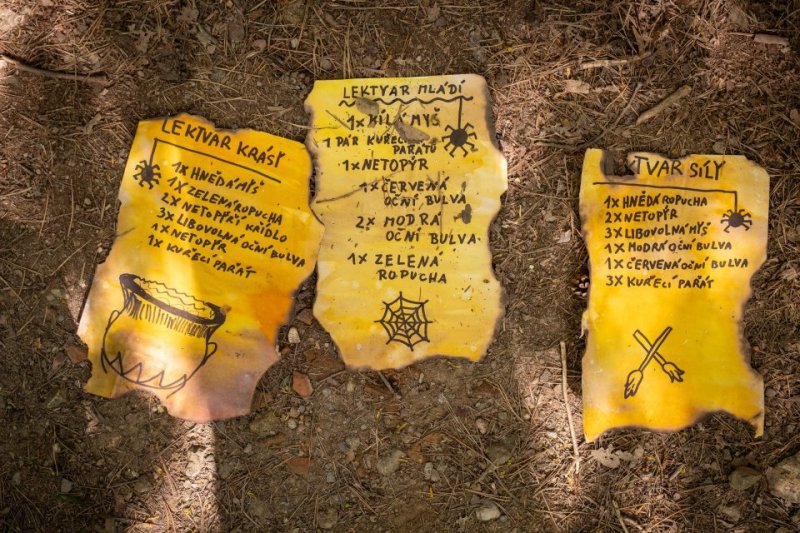 LEKTVAR KRÁSY
1x HNĚDÁ MYŠ
1x ZELENÁ ROPUCHA
2x NETOPÝŘÍ KŘÍDLO
3x LIBOVOLNÁ OČNÍ BULVA
1x NETOPÝR
1x KUŘECÍ PAŘÁT
LEKTVAR MLÁDÍ
1x BÍLÁ MYŠ
1 PÁR KUŘECÍ
PAŘÁTŮ
1x NETOPÝR
1x ČERVENÁ
OČNÍ BULVA
2x MODRÁ
OČNÍ BULVA
1x ZELENÁ
ROPUCHA
TVAR SÍLY
1x HNĚDÁ ROPUCHA
2x NETOPÝR
3x LIBOVOLNÁ MYŠ
1x MODRÁ OČNÍ BULVA
1x ČERVENÁ OČNÍ BULVA
3x KUŘECÍ PAŘÁT